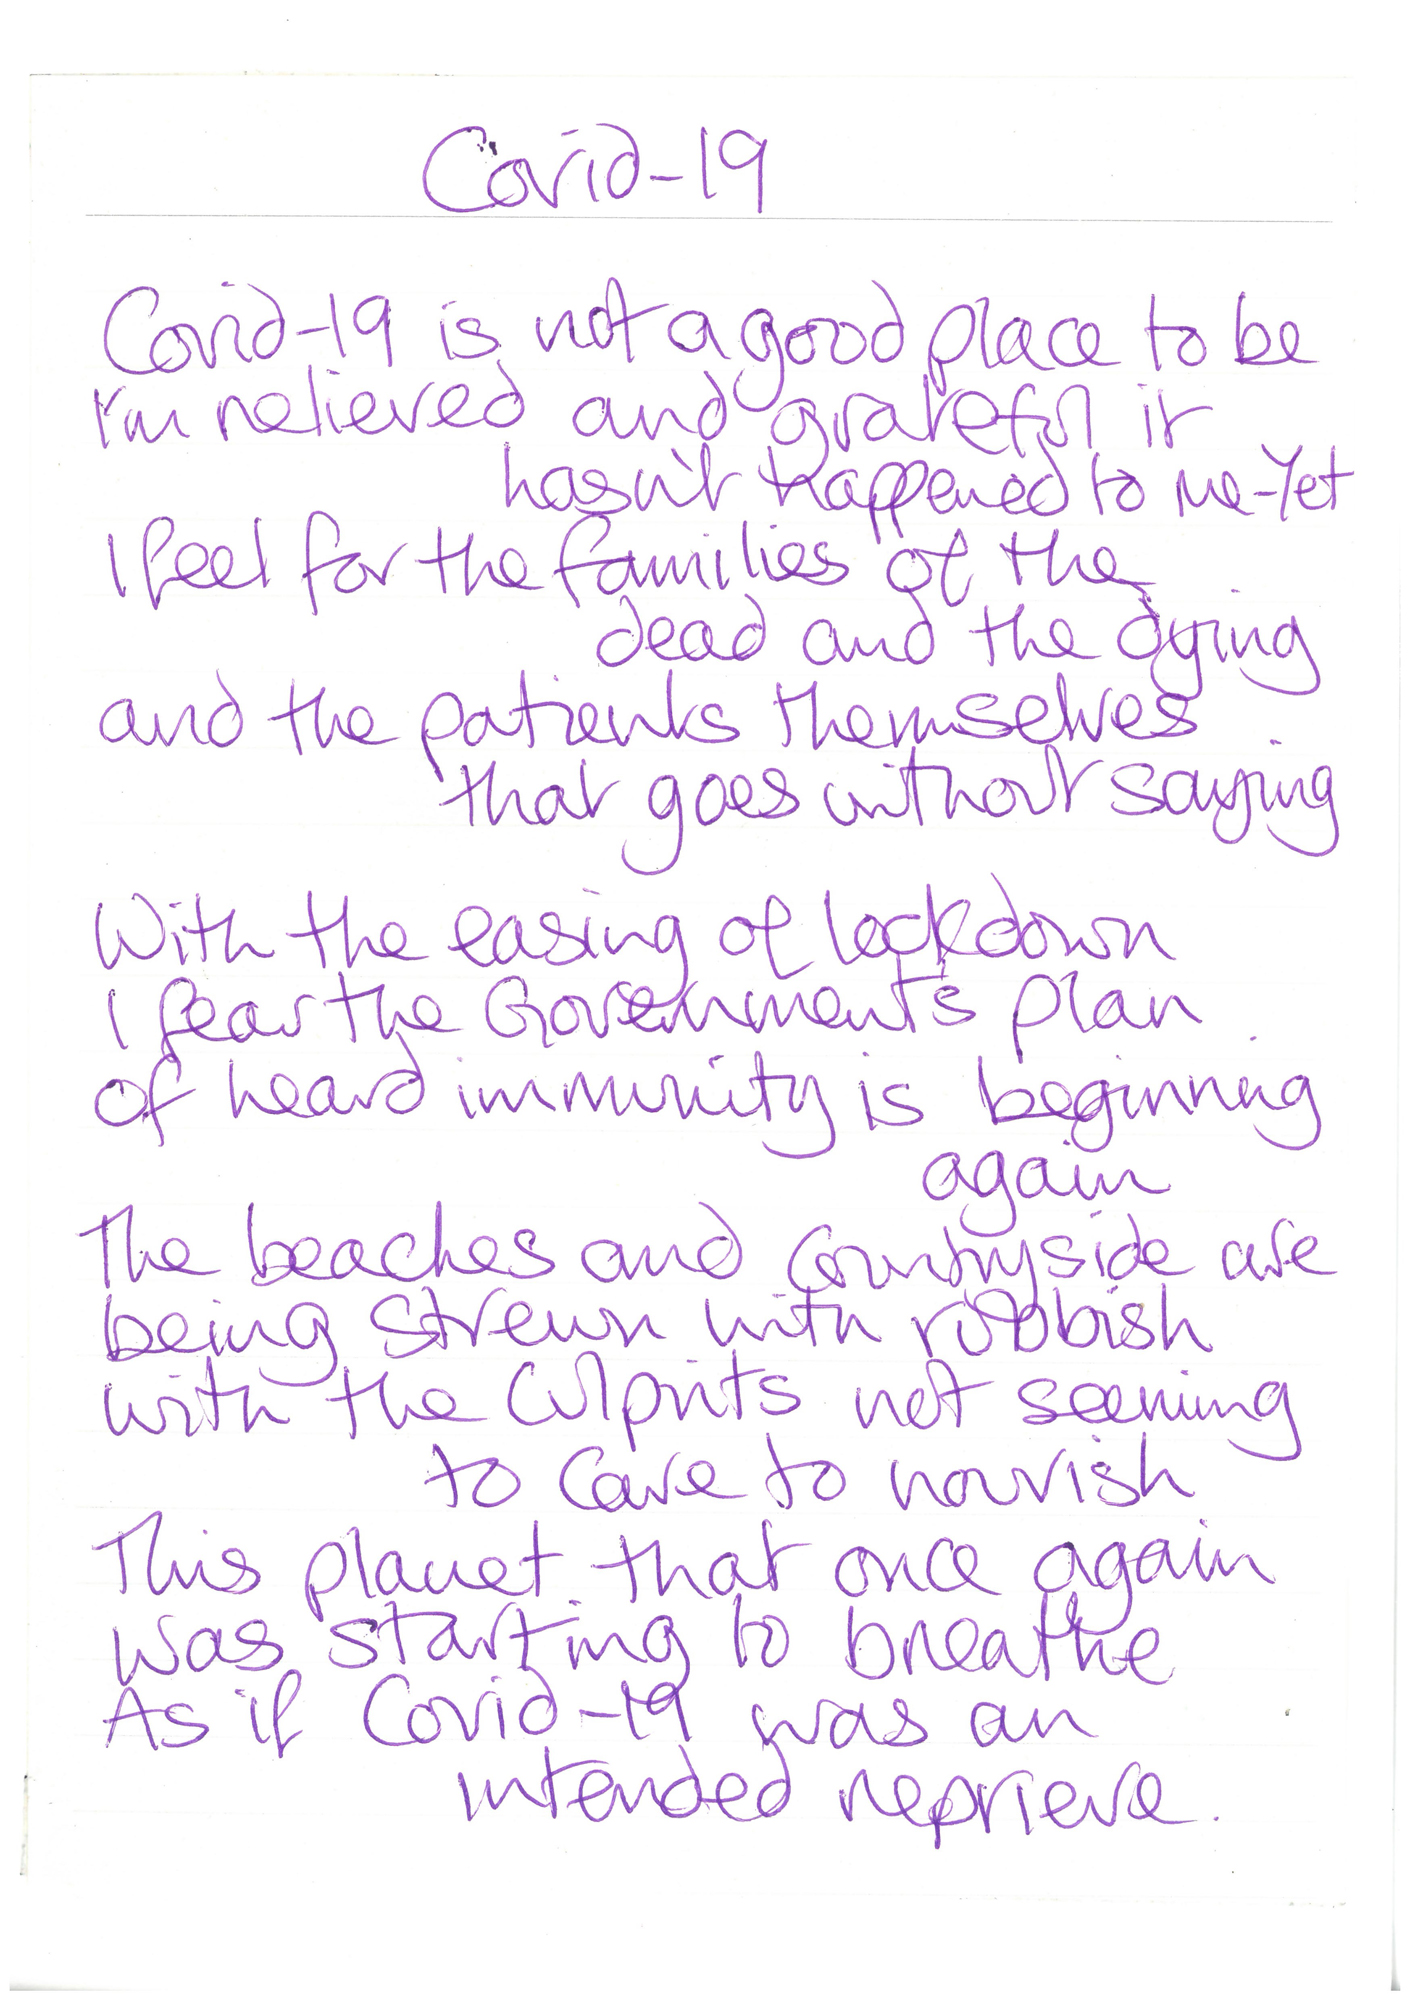 Covid-19
Covid-19 is not a good place to be
I'm relieved and grateful it
hasn't happened to me-Yet
I feel for the families of the
dead and the dying
and the patients themselves
that goes without saying
With the easing of lockdown
I fear the Government's plan
of heard immunity is beginning
again
The beaches and Countryside are
being strewn with rubbish
with the Culprits not seeming
to Care to nourish
This planet that once again
was starting to breathe
As if Covid-19 was an
intended reprieve.